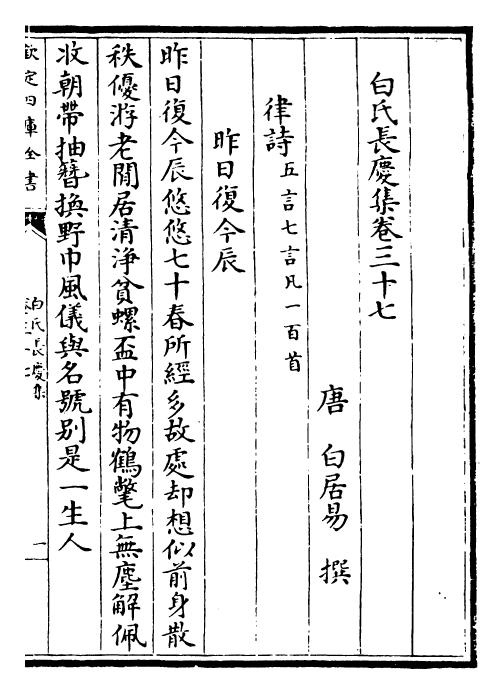 白氏長慶集卷三十七
唐 白居易 撰
律詩五言七言凡一百首
昨日復今辰
昨日復今辰悠悠七十春所經多故處却想似前身散
秩優游老閒居清淨貧螺盃中有物鶴氅上無塵解佩
收朝帶抽簪換野巾風儀與名號別是一生人
欽定四庫全書
白氏長慶集
一